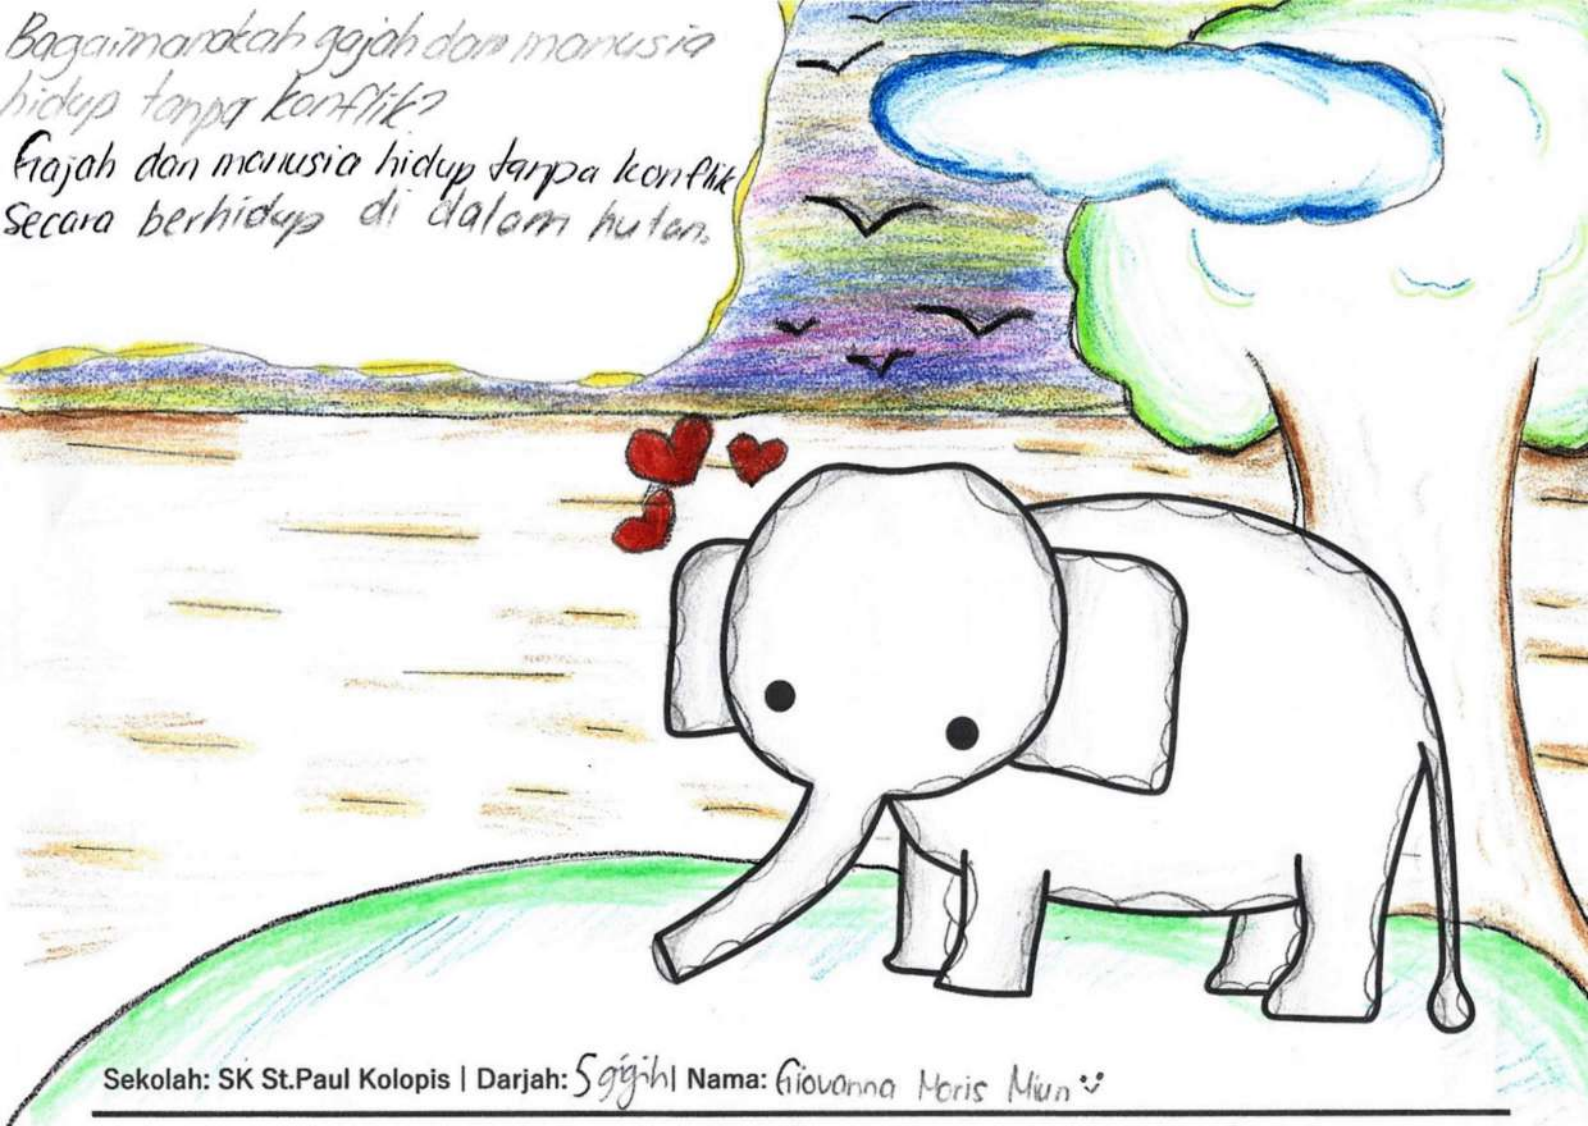 Bagaimanakah gajah dan manusia
hidup tanpa konflik?
Gajah dan manusia hidup tanpa konflik
secara berhidup di dalam hutan.
Sekolah: SK St.Paul Kolopis | Darjah: 5 gigih | Nama: Giovanna Moris Miun